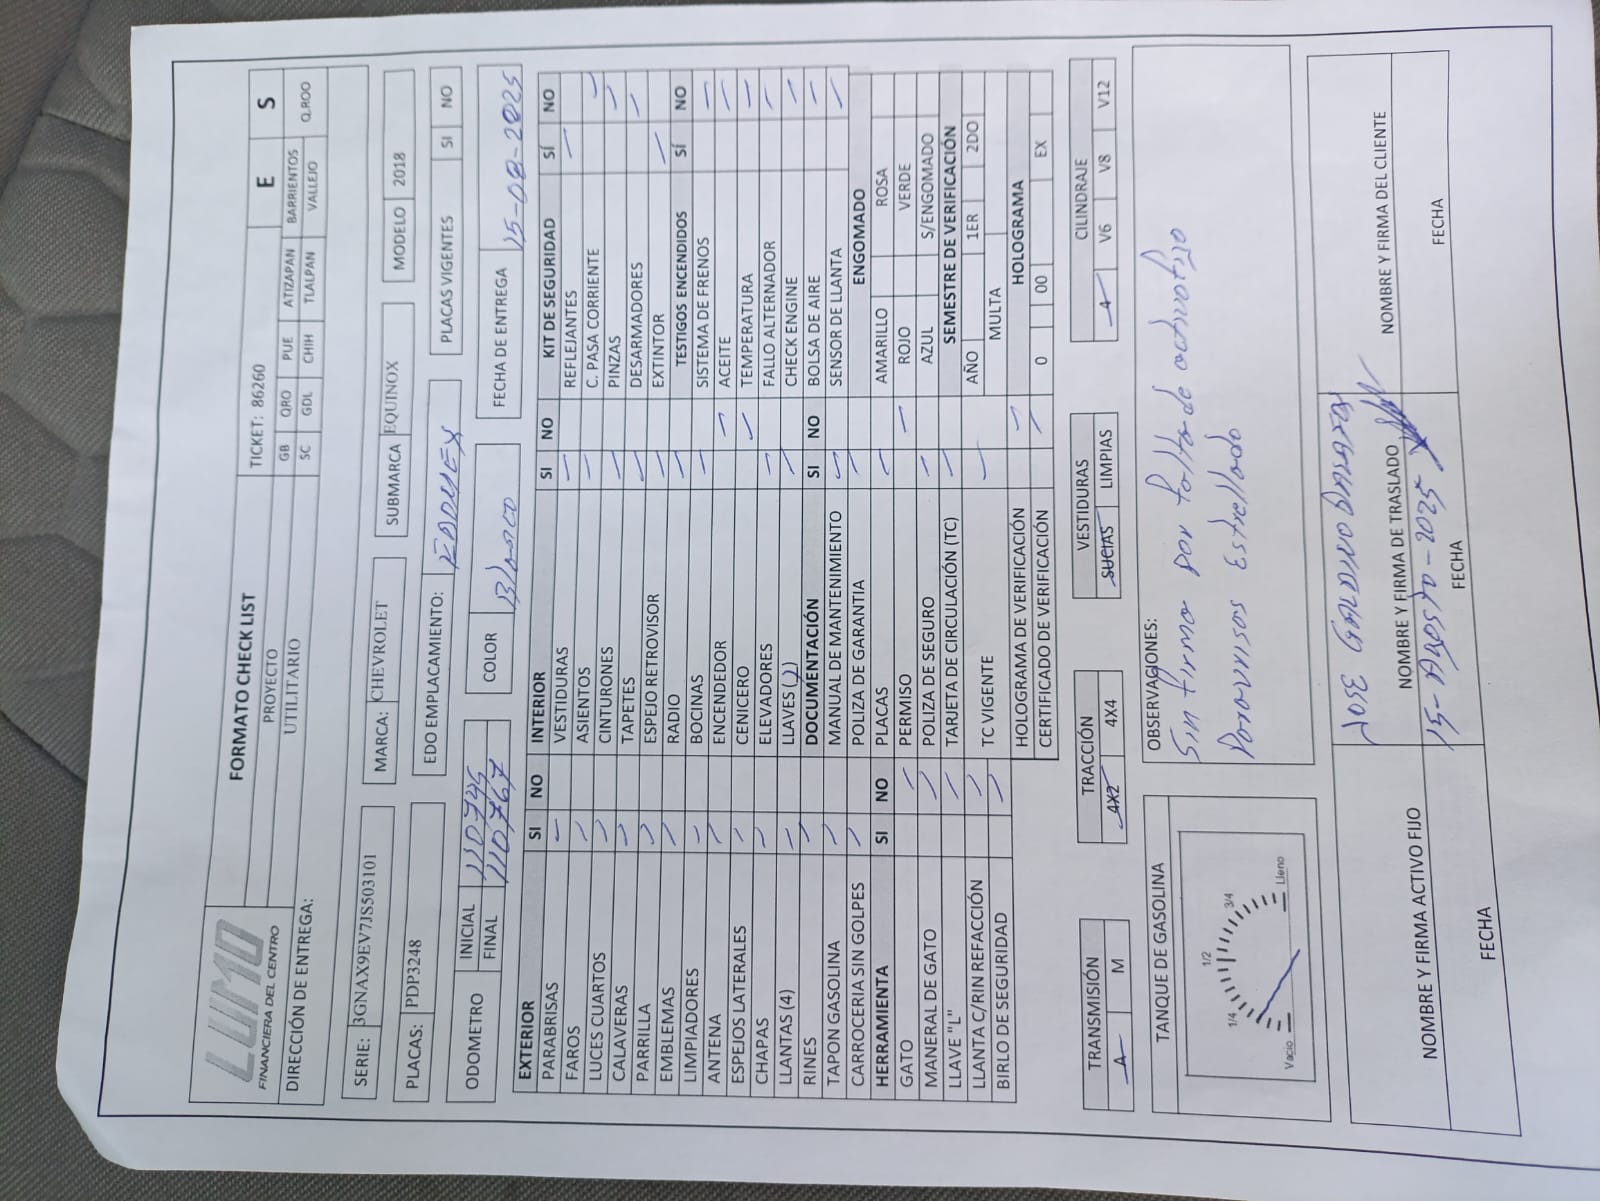 LUMO
FINANCIERA DEL CENTRO
FORMATO CHECK LIST
TICKET: 86260 E S
PROYECTO
UTILITARIO
GB QRO PUE ATIZAPAN BARRIENTOS Q.ROO
SC GDL CHIH TLALPAN VALLEJO
DIRECCIÓN DE ENTREGA:
SERIE: 3GNAX9EV7JS503101 MARCA: CHEVROLET SUBMARCA EQUINOX MODELO 2018
PLACAS: PDP3248 EDO EMPLACAMIENTO: EDOMEX PLACAS VIGENTES SI NO
ODOMETRO INICIAL 110745 COLOR Blanco FECHA DE ENTREGA 15-08-2025
FINAL 110767
EXTERIOR SI NO
PARABRISAS
FAROS
LUCES CUARTOS
CALAVERAS
PARRILLA
EMBLEMAS
LIMPIADORES
ANTENA
ESPEJOS LATERALES
CHAPAS
LLANTAS (4)
RINES
TAPON GASOLINA
CARROCERIA SIN GOLPES
HERRAMIENTA SI NO
GATO
MANERAL DE GATO
LLAVE "L"
LLANTA C/RIN REFACCIÓN
BIRLO DE SEGURIDAD
INTERIOR SI NO
VESTIDURAS
ASIENTOS
CINTURONES
TAPETES
ESPEJO RETROVISOR
RADIO
BOCINAS
ENCENDEDOR
CENICERO
ELEVADORES
LLAVES (2)
DOCUMENTACIÓN SI NO
MANUAL DE MANTENIMIENTO
POLIZA DE GARANTIA
PLACAS
PERMISO
POLIZA DE SEGURO
TARJETA DE CIRCULACIÓN (TC)
TC VIGENTE
HOLOGRAMA DE VERIFICACIÓN
CERTIFICADO DE VERIFICACIÓN
KIT DE SEGURIDAD SÍ NO
REFLEJANTES
C. PASA CORRIENTE
PINZAS
DESARMADORES
EXTINTOR
TESTIGOS ENCENDIDOS SÍ NO
SISTEMA DE FRENOS
ACEITE
TEMPERATURA
FALLO ALTERNADOR
CHECK ENGINE
BOLSA DE AIRE
SENSOR DE LLANTA
ENGOMADO
AMARILLO ROSA
ROJO VERDE
AZUL S/ENGOMADO
SEMESTRE DE VERIFICACIÓN
AÑO 1ER 2DO
MULTA
HOLOGRAMA
0 00 EX
TRANSMISIÓN
A M
TRACCIÓN
4X2 4X4
VESTIDURAS
SUCIAS LIMPIAS
CILINDRAJE
4 V6 V8 V12
TANQUE DE GASOLINA
Vacio 1/4 1/2 3/4 Lleno
OBSERVACIONES:
Sin firma por falta de
Estrellado
NOMBRE Y FIRMA ACTIVO FIJO
FECHA
JOSE GALDINO
NOMBRE Y FIRMA DE TRASLADO
15-AGOSTO-2025
FECHA
NOMBRE Y FIRMA DEL CLIENTE
FECHA